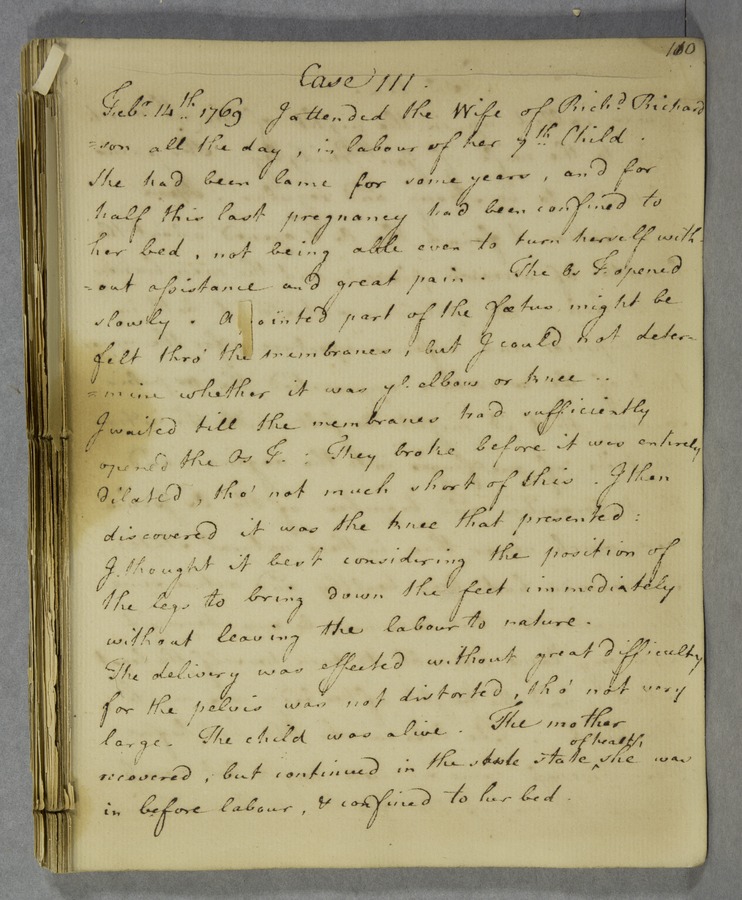 110
Case III.
Feb.y 14th 1769 I attended the Wife of Richd Richard
=son all the day, in labour of her 7th Child.
She had been lame for some years, and for
half this last pregnancy had been confined to
her bed, not being able even to turn herself with-
=out assistance and great pain. The Os T. opened
slowly. A pointed part of the fœtus might be
felt thro' the membranes, but I could not deter-
=mine whether it was ye elbow or knee..
I waited till the membranes had sufficiently
opened the Os T.: They broke before it was entirely
dilated, tho' not much short of this. I then
discovered it was the knee that presented:
I thought it best considering the position of
the legs to bring down the feet immediately
without leaving the labour to nature.
The delivery was effected without great difficulty
for the pelvis was not distorted, tho' not very
large. The child was alive. The mother
of health
recovered, but continued in the state she was
in before labour, & confined to her bed.